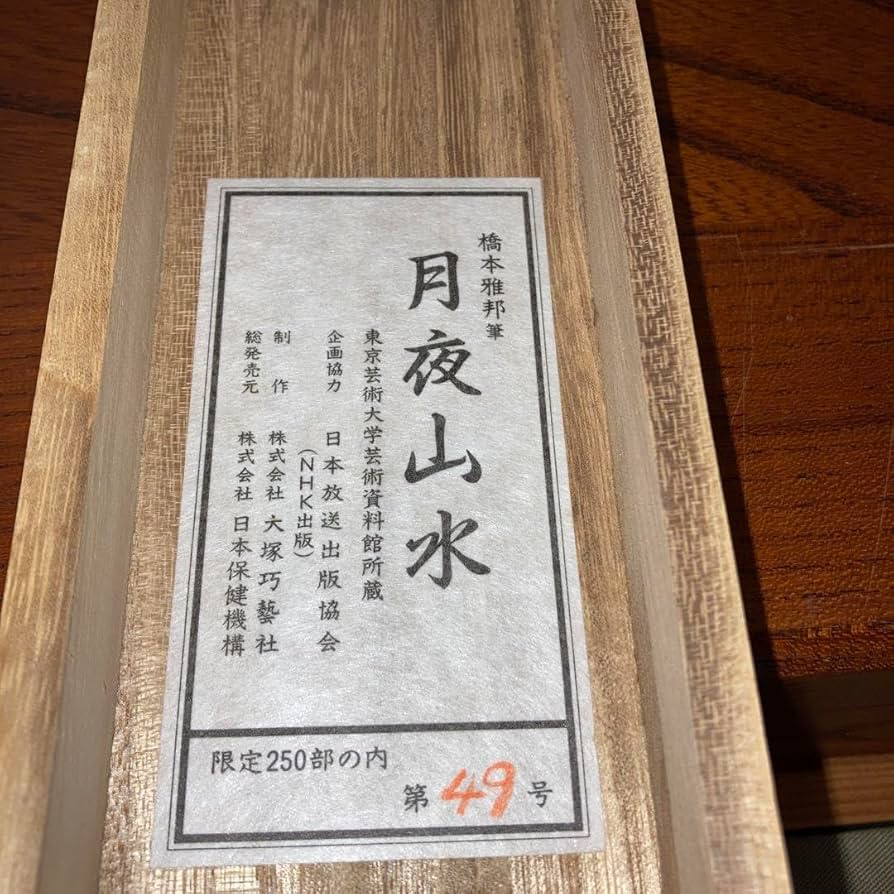 橋本雅邦筆
月夜山水
東京芸術大学芸術資料館所蔵
企画協力 日本放送出版協会
(NHK出版)
制作 株式会社 大塚巧藝社
総発売元 株式会社 日本保健機構
限定250部の内
第49号